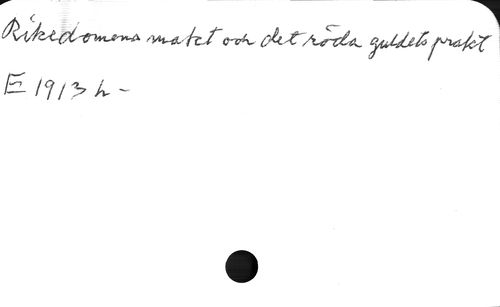 Rikedomens makt och det röda guldets prakt
E 1913 h -